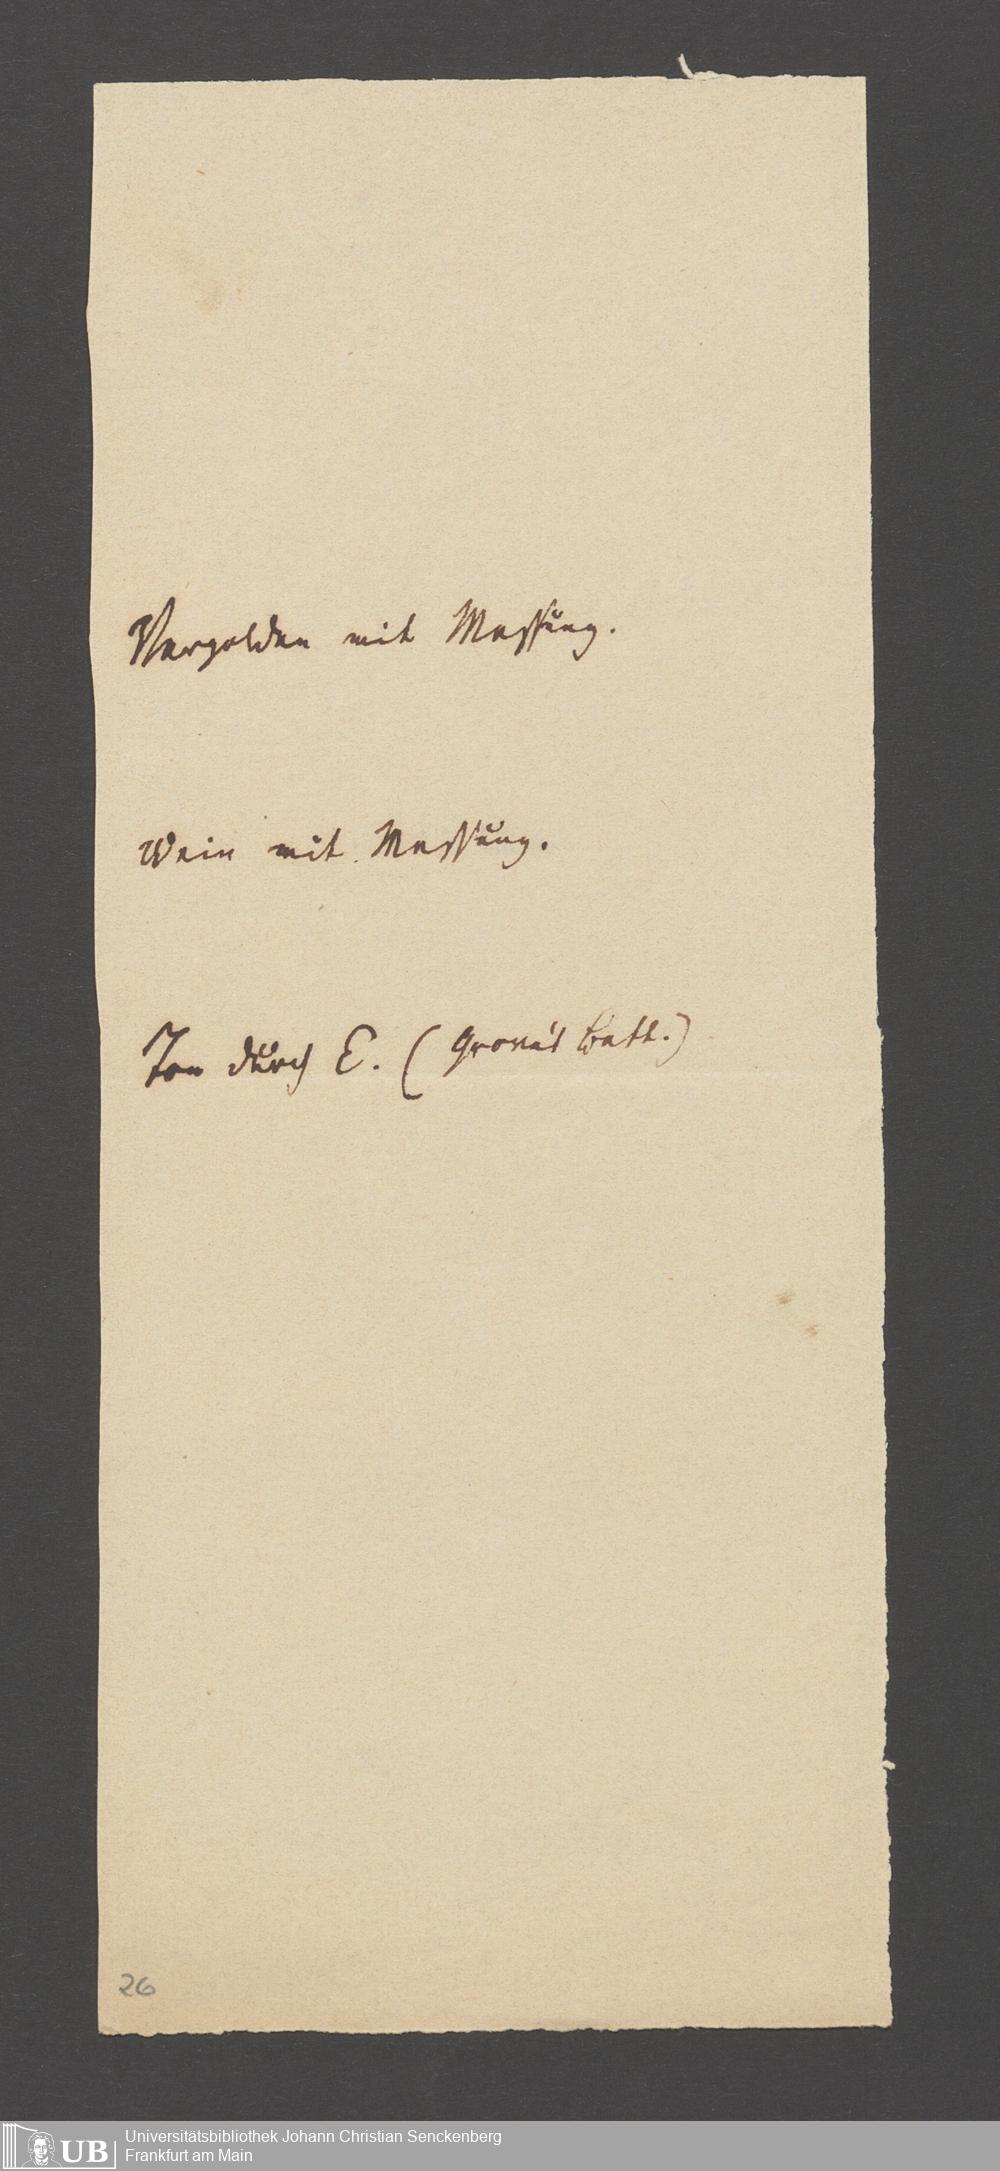 Vergolden mit Messung.
Wein mit Messung.
Ton durch E. (Grove's Batt.)
26
UB
Universitätsbibliothek Johann Christian Senckenberg
Frankfurt am Main